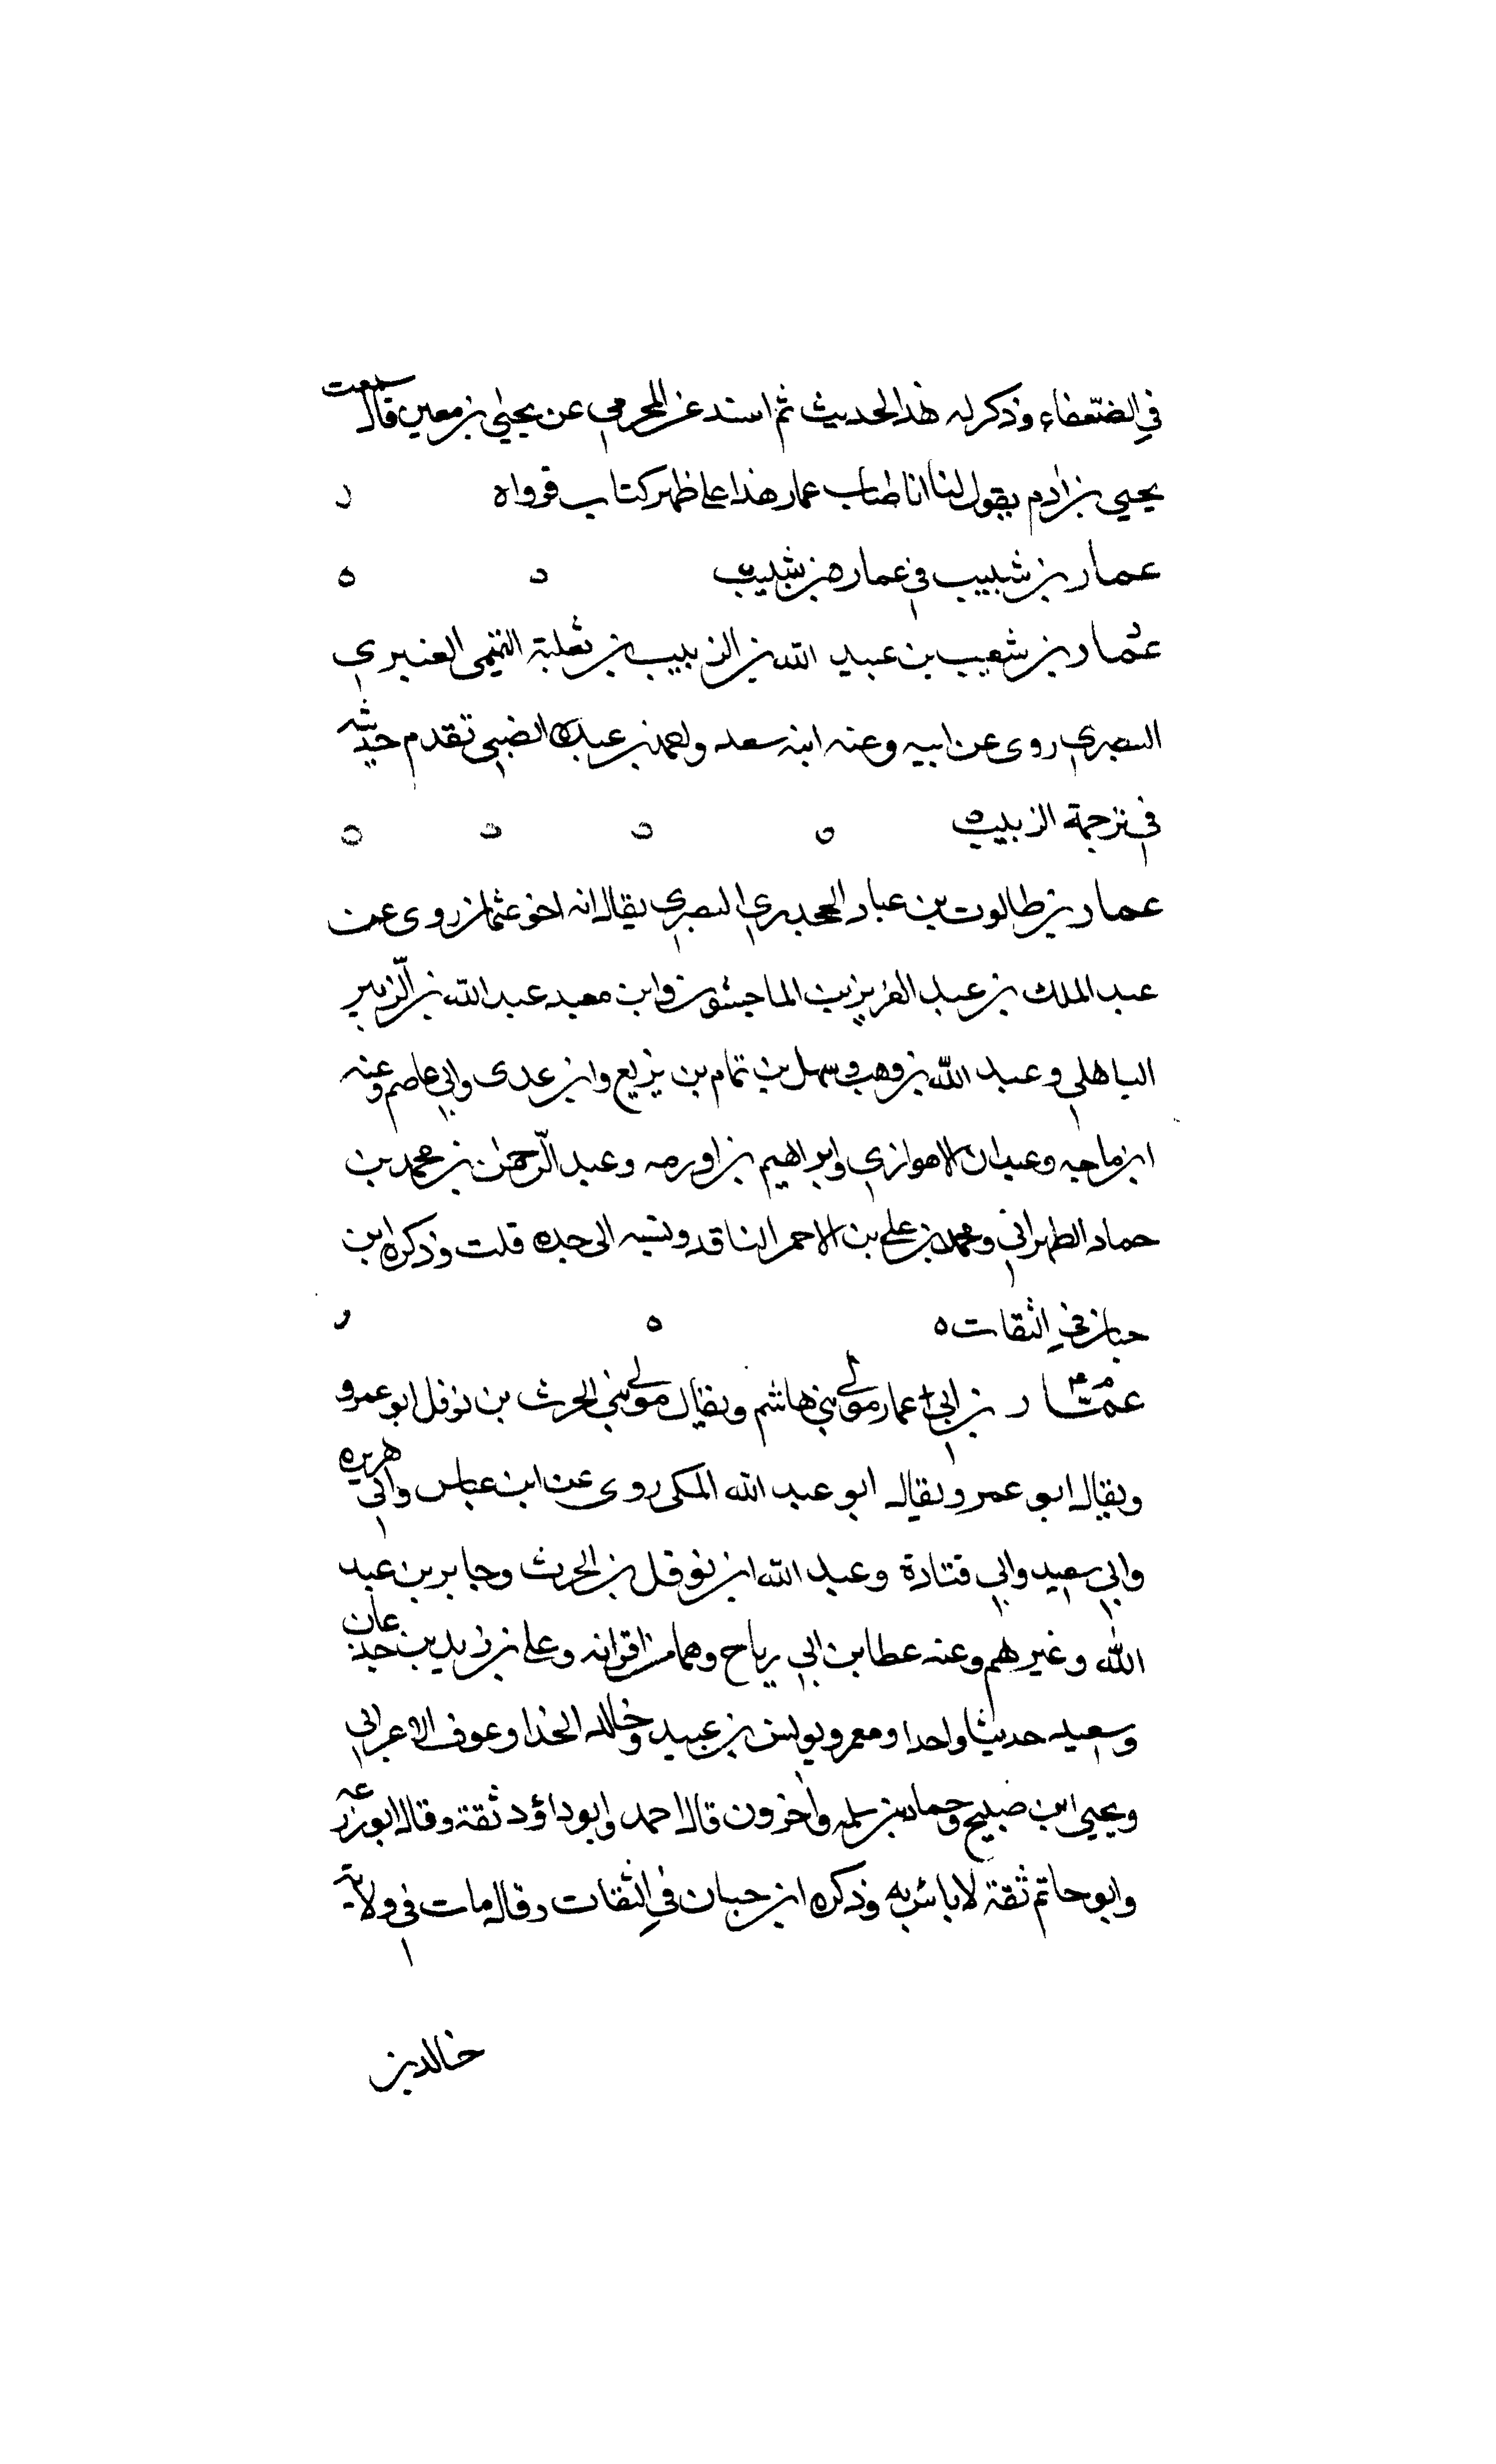 في الضعفاء وذكر له هذا الحديث ثم اسند عن المخرمي عن يحيى بن معين قال سمعت
يحيى بن آدم يقول لنا انا طاب عمار هذا على ظهر كتاب فرواه
عمار بن شبيب في عماره بن شبيب
عمار بن شعيب بن عبيد الله بن الزبيب بن ثعلبة التميمي العنبري
البصري روى عن ابيه وعنه ابنه سعد واحمد بن عبدة الضبي تقدم حديثه
في ترجمة الزبيب
عمار بن طالوت بن عباد الجحدري البصري يقال انه اخو عثمان روى عن
عبد الملك بن عبد العزيز بن الماجشون وابن معبد عبد الله بن الزبير
الباهلي وعبد الله بن وهب وسهل بن تمام بن بزيع وابن عدى وابي عاصم وعنه
ابن ماجه وعبدان الاهوازي وابراهيم بن اورمه وعبد الرحمن بن محمد بن
حماد الطهراني ومحمد بن علي بن الاحمر الناقد ونسبه الى جده قلت وذكره ابن
حبان في الثقات
عمار بن ابي عمار مولى بني هاشم ويقال مولى بني الحرث بن نوفل ابو عمرو
ويقال ابو عمر ويقال ابو عبد الله المكى روى عن ابن عباس وابي هريره
وابي سعيد وابي قتادة وعبد الله ابن نوفل بن الحرث وجابر بن عبد
الله وغيرهم وعنه عطا بن ابي رباح وهما من اقرانه وعلى بن زيد بن جدعان
وسعيد حديثا واحدا ومعمر ويونس بن عبيد وخالد الحذا وعوف الاعرابي
ويحيى ابن صبيح وحماد بن سلمه وآخرون قال احمد وابو داؤد ثقة وقال ابو زرعه
وابو حاتم ثقة لا باس به وذكره ابن حبان في الثقات وقال مات في ولاية
خالد بن